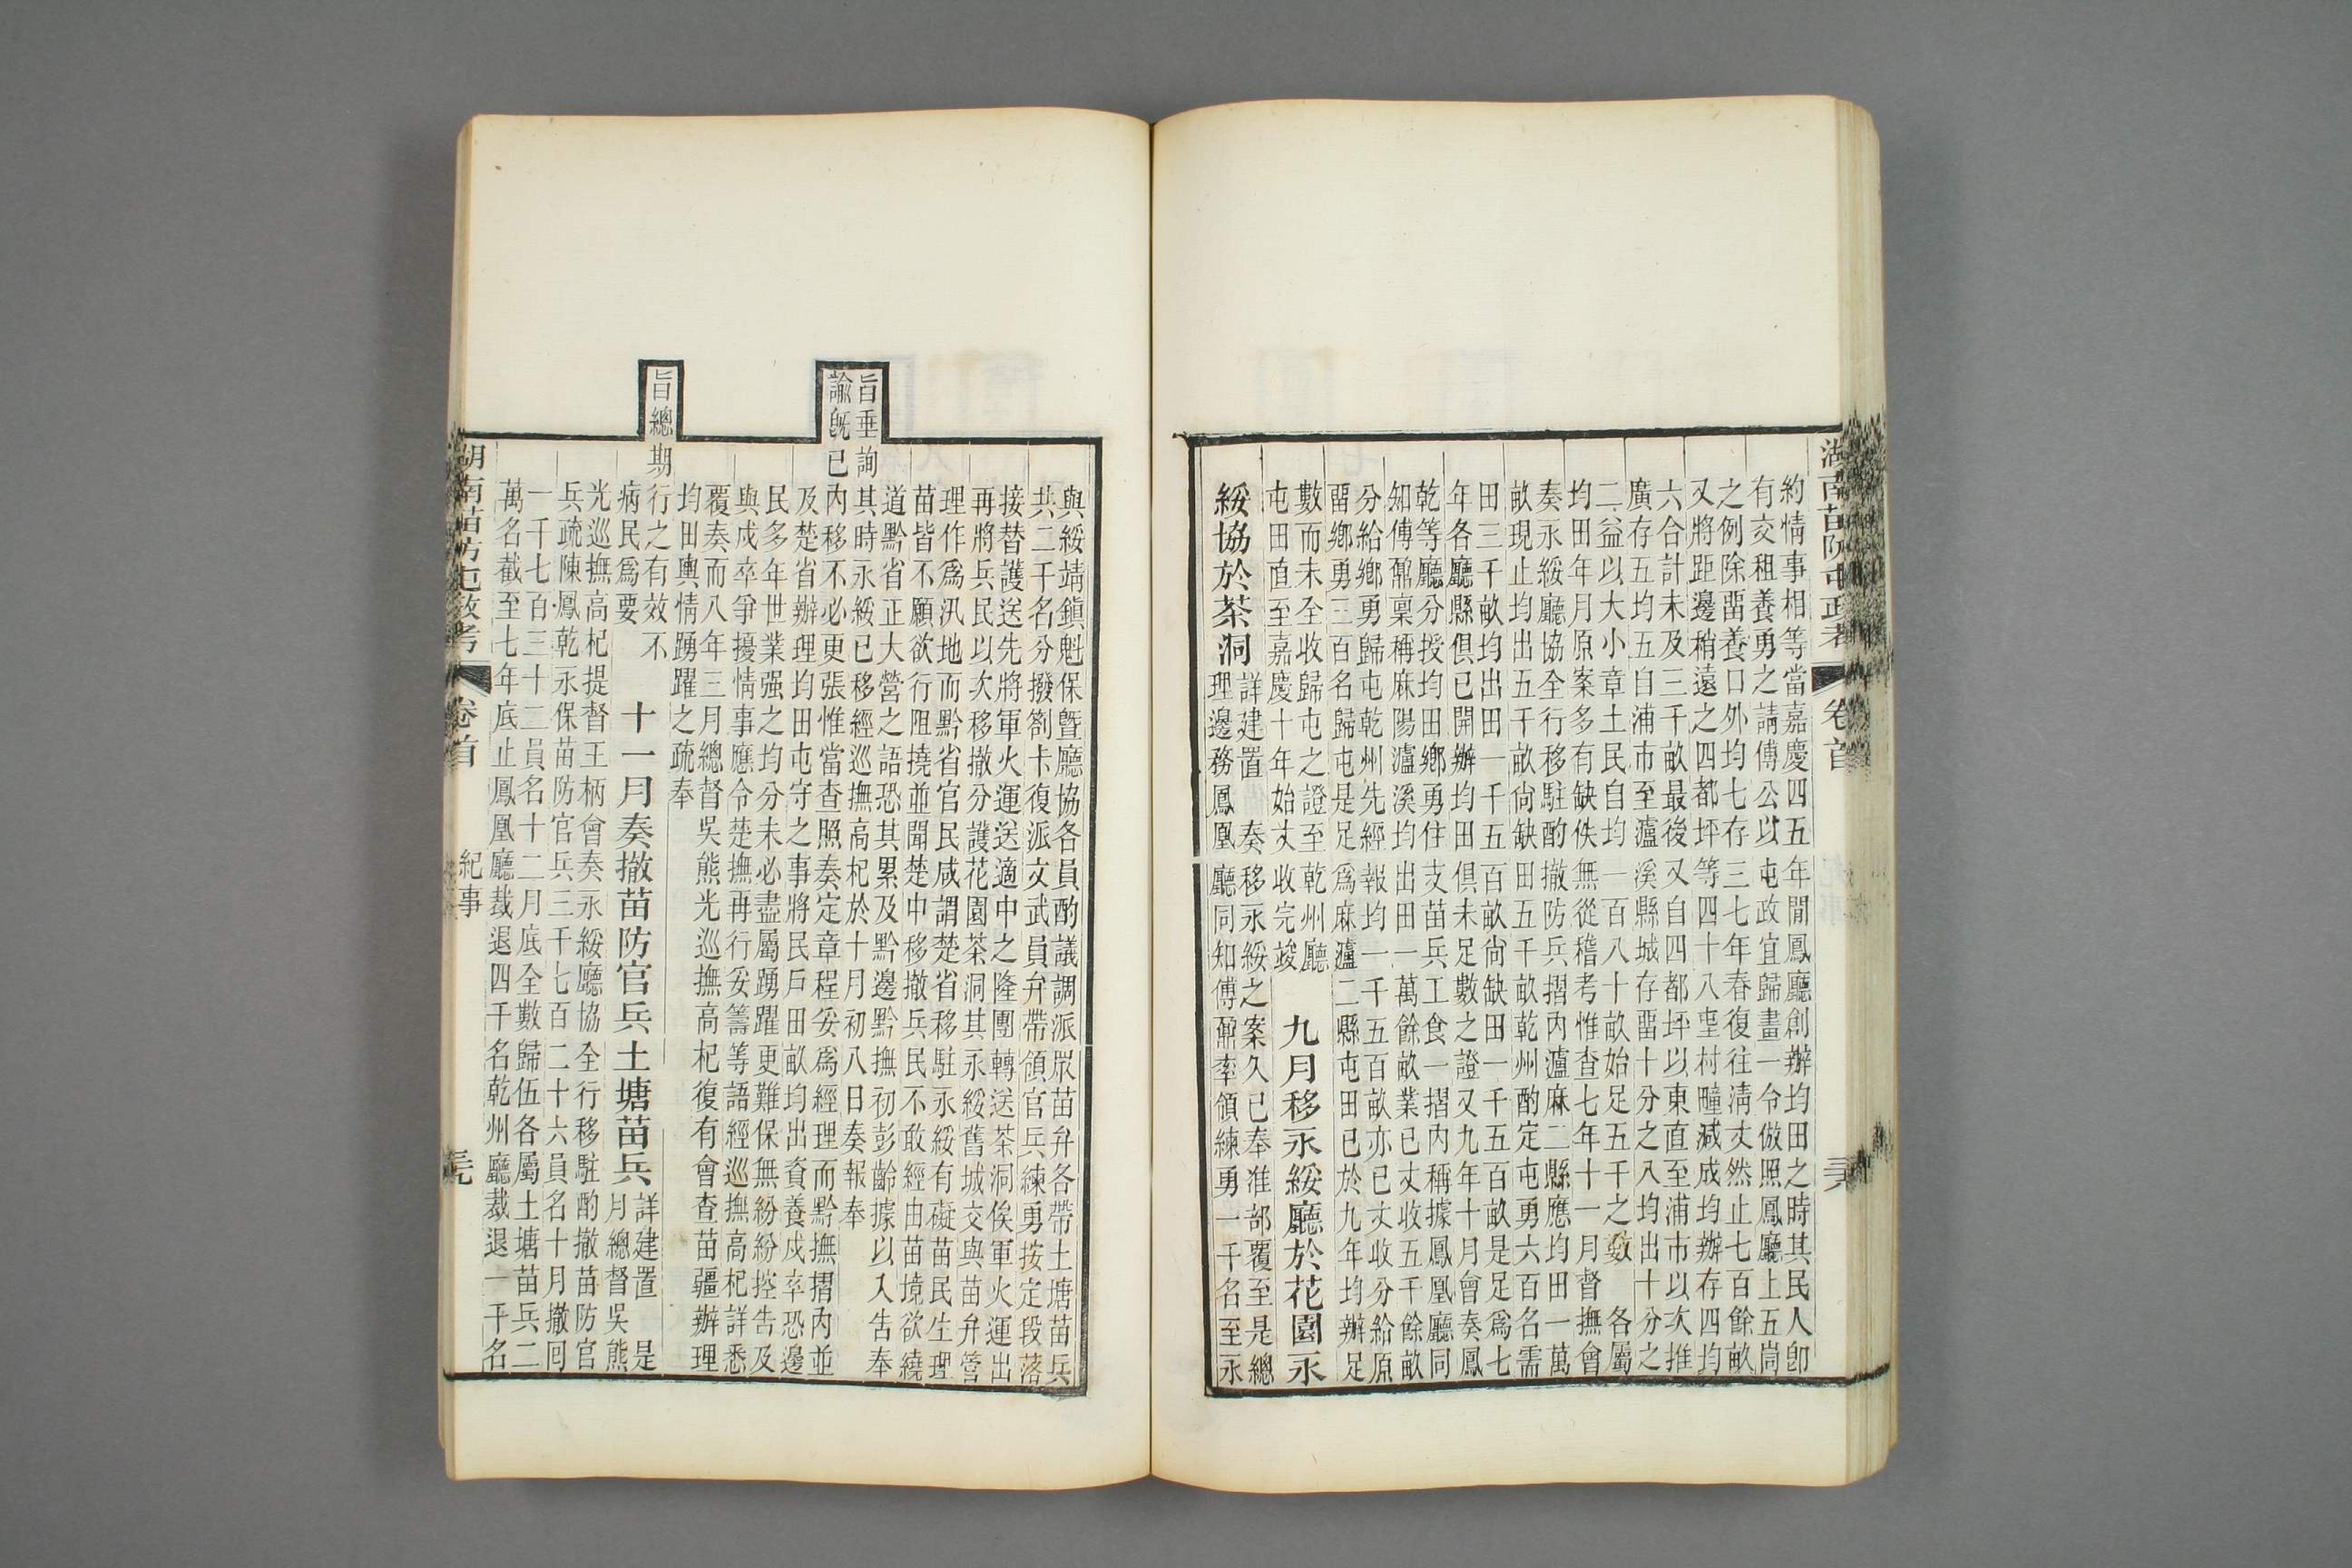 湖南苗防屯政考　卷首
約情事相等當嘉慶四五年間鳳廳創辦均田之時其民人卽
有交租養勇之請傅公以屯政宜歸畫一令倣照鳳廳上五峝
之例除畱養口外均七存三七年春復往清丈然止七百餘畝
又將距邊稍遠之四都坪等四十八坉村疃減成均辦存四均
六合計未及三千畝最後又自四都坪以東直至浦市以次推
廣存五均五自浦市至瀘溪縣城存畱十分之八均出十分之
二益以大小章土民自均一百八十畝始足五千之數　各屬
均田年月原案多有缺佚無從稽考惟查七年十一月督撫會
奏永綏廳協全行移駐酌撤防兵摺內瀘麻二縣應均田一萬
畝現止均出五千畝尙缺田五千畝乾州酌定屯勇六百名需
田三千畝均出田一千五百畝尙缺田一千五百畝是足爲七
年各廳縣俱已開辦均田俱未足數之證又九年十月會奏鳳
乾等廳分授均田鄉勇住支苗兵工食一摺內稱據鳳凰廳同
知傅鼐稟稱麻陽瀘溪均出田一萬餘畝業已丈收五千餘畝
分給鄉勇歸屯乾州先經報均一千五百畝亦已丈收分給原
畱鄉勇三百名歸屯是足爲麻瀘二縣屯田已於九年均辦足
數而未全收歸屯之證至乾州廳
屯田直至嘉慶十年始丈收完竣
九月移永綏廳於花園永
綏協於茶洞
詳建置　奏移永綏之案久已奉准部覆至是總
理邊務鳳凰廳同知傅鼐率領練勇一千名至永
與綏靖鎭魁保曁廳協各員酌議調派眾苗弁各帶土塘苗兵
共二千名分撥劄卡復派文武員弁帶領官兵練勇按定段落
接替護送先將軍火運送適中之隆團轉送茶洞俟軍火運出
再將兵民以次移撤分護花園茶洞其永綏舊城交與苗弁管
理作爲汛地而黔省官民咸謂楚省移駐永綏有礙苗民生理
苗皆不願欲行阻撓並聞楚中移撤兵民不敢經由苗境欲繞
道黔省正大營之語恐其累及黔邊黔撫初彭齡據以入告奉
旨垂詢其時永綏已移經巡撫高杞於十月初八日奏報奉
諭旣已內移不必更張惟當查照奏定章程妥爲經理而黔撫摺內並
及楚省辦理均田屯守之事將民戶田畝均出資養戍卒恐邊
民多年世業强之均分未必盡屬踴躍更難保無紛紛控告及
與戍卒爭擾情事應令楚撫再行妥籌等語經巡撫高杞詳悉
覆奏而八年三月總督吳熊光巡撫高杞復有會查苗疆辦理
均田輿情踴躍之疏奉
旨總期行之有效不
病民爲要
十一月奏撤苗防官兵土塘苗兵
詳建置　是
月總督吳熊
光巡撫高杞提督王柄會奏永綏廳協全行移駐酌撤苗防官
兵疏陳鳳乾永保苗防官兵三千七百二十六員名十月撤回
一千七百三十二員名十二月底全數歸伍各屬土塘苗兵二
萬名截至七年底止鳳凰廳裁退四千名乾州廳裁退一千名
湖南苗防屯政考　卷首　紀事